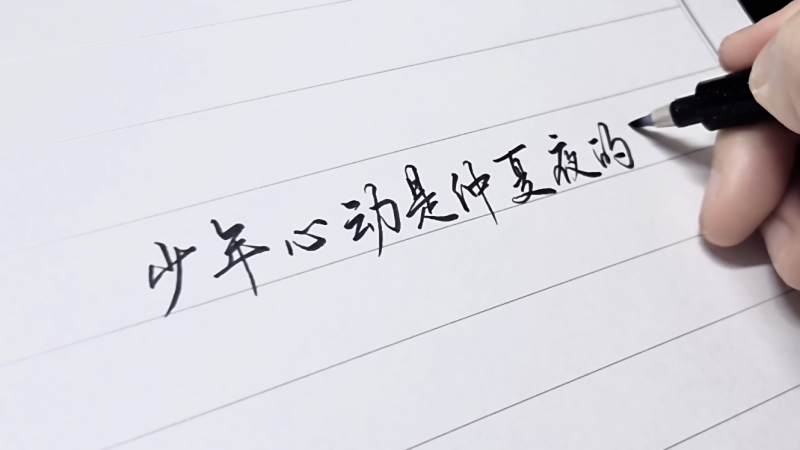 少年心动是仲夏夜的